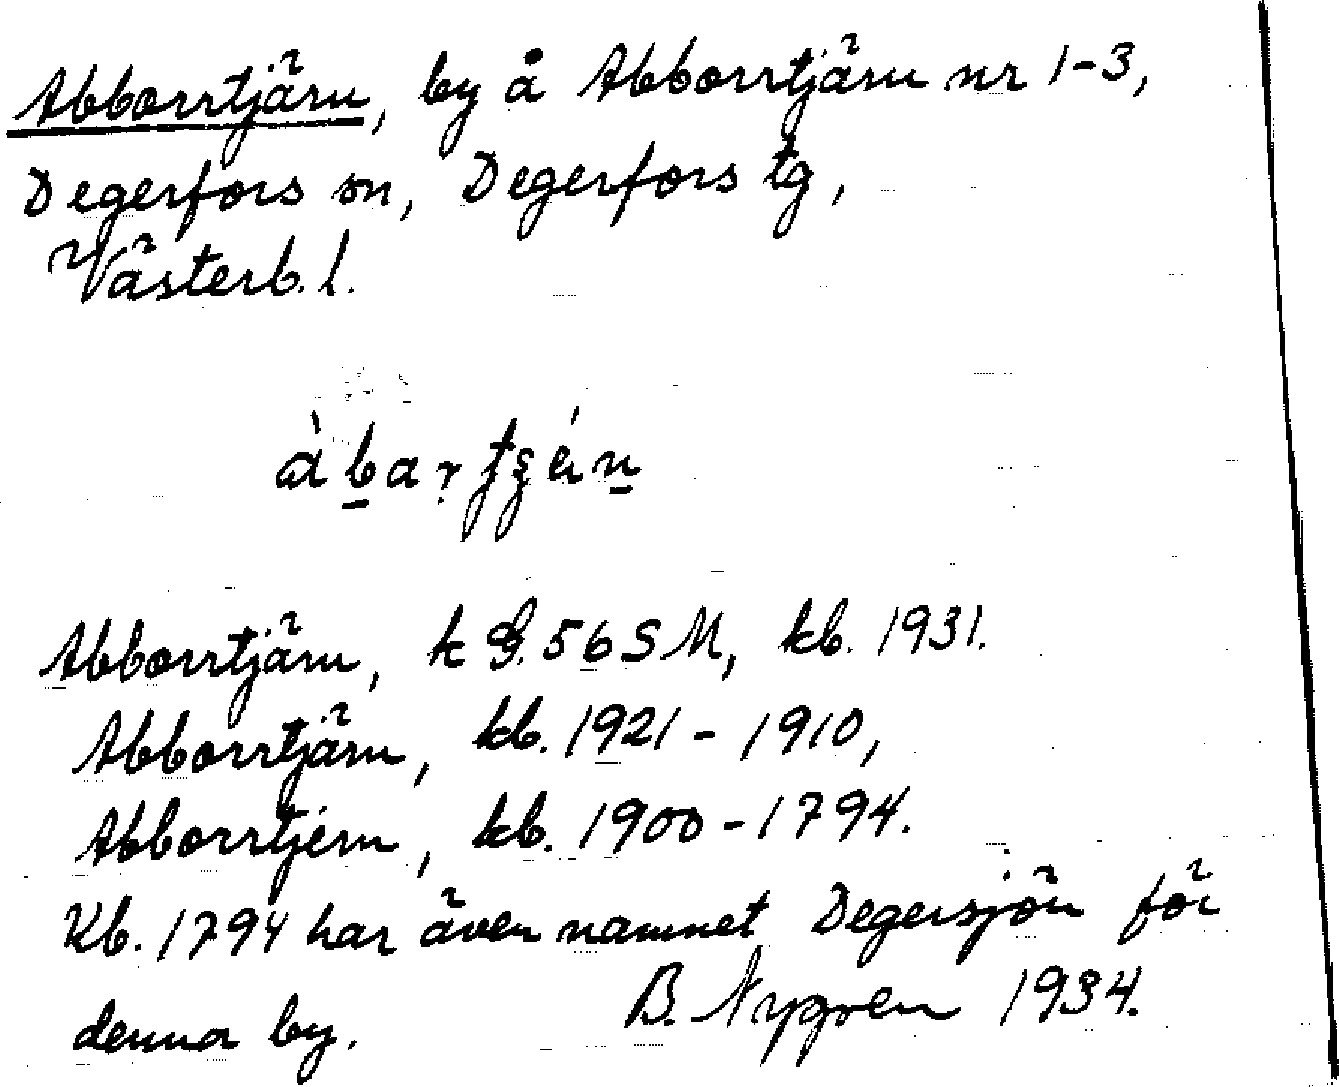 Abborrtjärn, by å Abborrtjärn nr 1-3,
Degerfors sn, Degerfors tg,
Västerb. l.
Abborrtjärn, k G. 56 S M, kb. 1931.
Abborrtjärn, kb. 1921 - 1910,
Abborrtjern, kb. 1900 - 1794.
Kb. 1794 har även namnet Degersjön för
denna by. B. Nygren 1934.